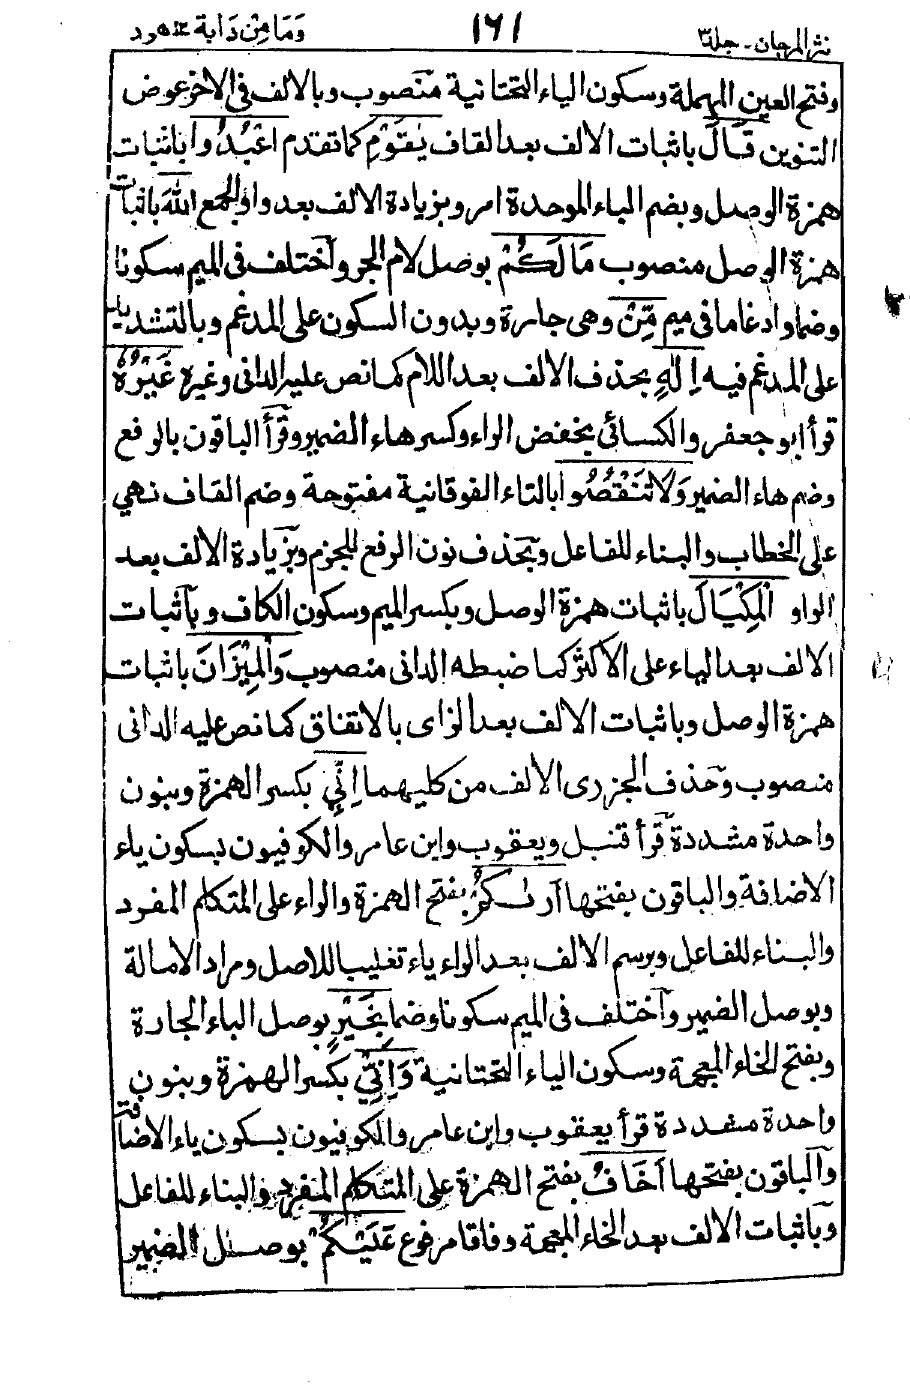 نثر المرجان - جلد ٣ ١٦١ وَمَا مِنْ دَابة ١٢ هود
وفتح العين المهملة وسكون الياء التحتانية منصوب وبالالف فى الاخر عوض
التنوين قَالَ باثبات الالف بعد القاف يٰقَوْمِ كما تقدم اعْبُدُوا باثبات
همزة الوصل وبضم الباء الموحدة امر وبزيادة الالف بعد واو الجمع اللهَ باثبات
همزة الوصل منصوب مَا لَكُمْ بوصل لام الجر واختلف فى الميم سكونا
وضما وادغاما فى ميم مِّنْ وهى جارة وبدون السكون على المدغم وبالتشديد
على المدغم فيه اِلٰهٍ بحذف الالف بعد اللام كما نص عليه الدانى وغيره غَيْرُهُ
قرأ ابو جعفر والكسائى بخفض الراء وكسر هاء الضمير وقرأ الباقون بالرفع
وضم هاء الضمير وَلَا تَنْقُصُوا بالتاء الفوقانية مفتوحة وضم القاف نهي
على الخطاب والبناء للفاعل وبحذف نون الرفع للجزم وبزيادة الالف بعد
الواو الْمِكْيَالَ باثبات همزة الوصل وبكسر الميم وسكون الكاف وباثبات
الالف بعد الياء على الاكثر كما ضبطه الدانى منصوب وَالْمِيْزَانَ باثبات
همزة الوصل وباثبات الالف بعد الزاى بالاتفاق كما نص عليه الدانى
منصوب وحذف الجزرى الالف من كليهما اِنِّي بكسر الهمزة وبنون
واحدة مشددة قرأ قنبل ويعقوب وابن عامر والكوفيون بسكون ياء
الاضافة والباقون بفتحها اَرٰىكُمْ بفتح الهمزة والراء على المتكلم المفرد
والبناء للفاعل وبرسم الالف بعد الراء ياء تغليبا للاصل ومراد الامالة
وبوصل الضمير واختلف فى الميم سكونا وضما بِخَيْرٍ بوصل الباء الجارة
وبفتح الخاء المعجمة وسكون الياء التحتانية وَاِنِّيْ بكسر الهمزة وبنون
واحدة مشددة قرأ يعقوب وابن عامر والكوفيون بسكون ياء الاضافة
والباقون بفتحها اَخَافُ بفتح الهمزة على المتكلم المفرد والبناء للفاعل
وباثبات الالف بعد الخاء المعجمة وفاقا مرفوع عَلَيْكُمْ بوصل الضمير